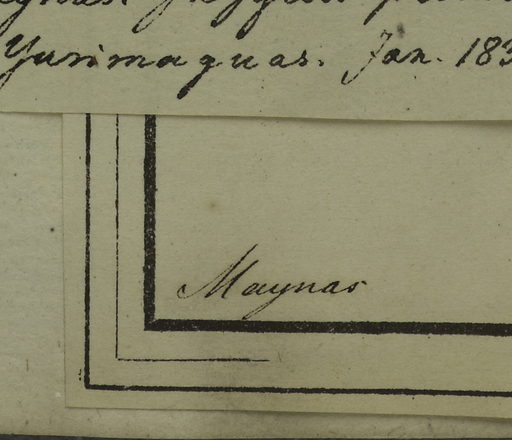 Yurimaguas. Jan. 183
Maynas